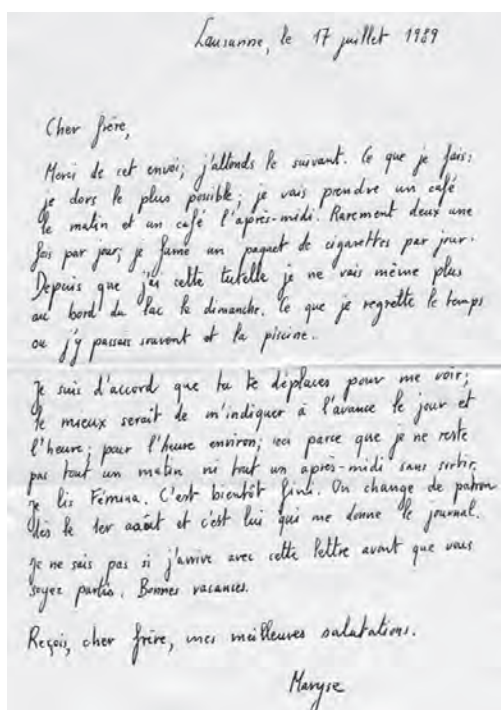 Lausanne, le 17 juillet 1989
Cher frère,
Merci de cet envoi; j'attends le suivant. Ce que je fais:
je dors le plus possible; je vais prendre un café
le matin et un café l'après-midi. Rarement deux une
fois par jour; je fume un paquet de cigarettes par jour.
Depuis que j'ai cette tutelle je ne vais même plus
au bord du lac le dimanche. Ce que je regrette le temps
ou j'y passais souvent et la piscine.
Je suis d'accord que tu te déplaces pour me voir;
le mieux serait de m'indiquer à l'avance le jour et
l'heure; pour l'heure environ; ceci parce que je ne reste
pas tout un matin ni tout un après-midi sans sortir.
Je lis Fémina. C'est bientôt fini. On change de patron
dès le 1er août et c'est lui qui me donne le journal.
Je ne sais pas si j'arrive avec cette lettre avant que vous
soyez partis. Bonnes vacances.
Reçois, cher frère, mes meilleures salutations.
Maryse